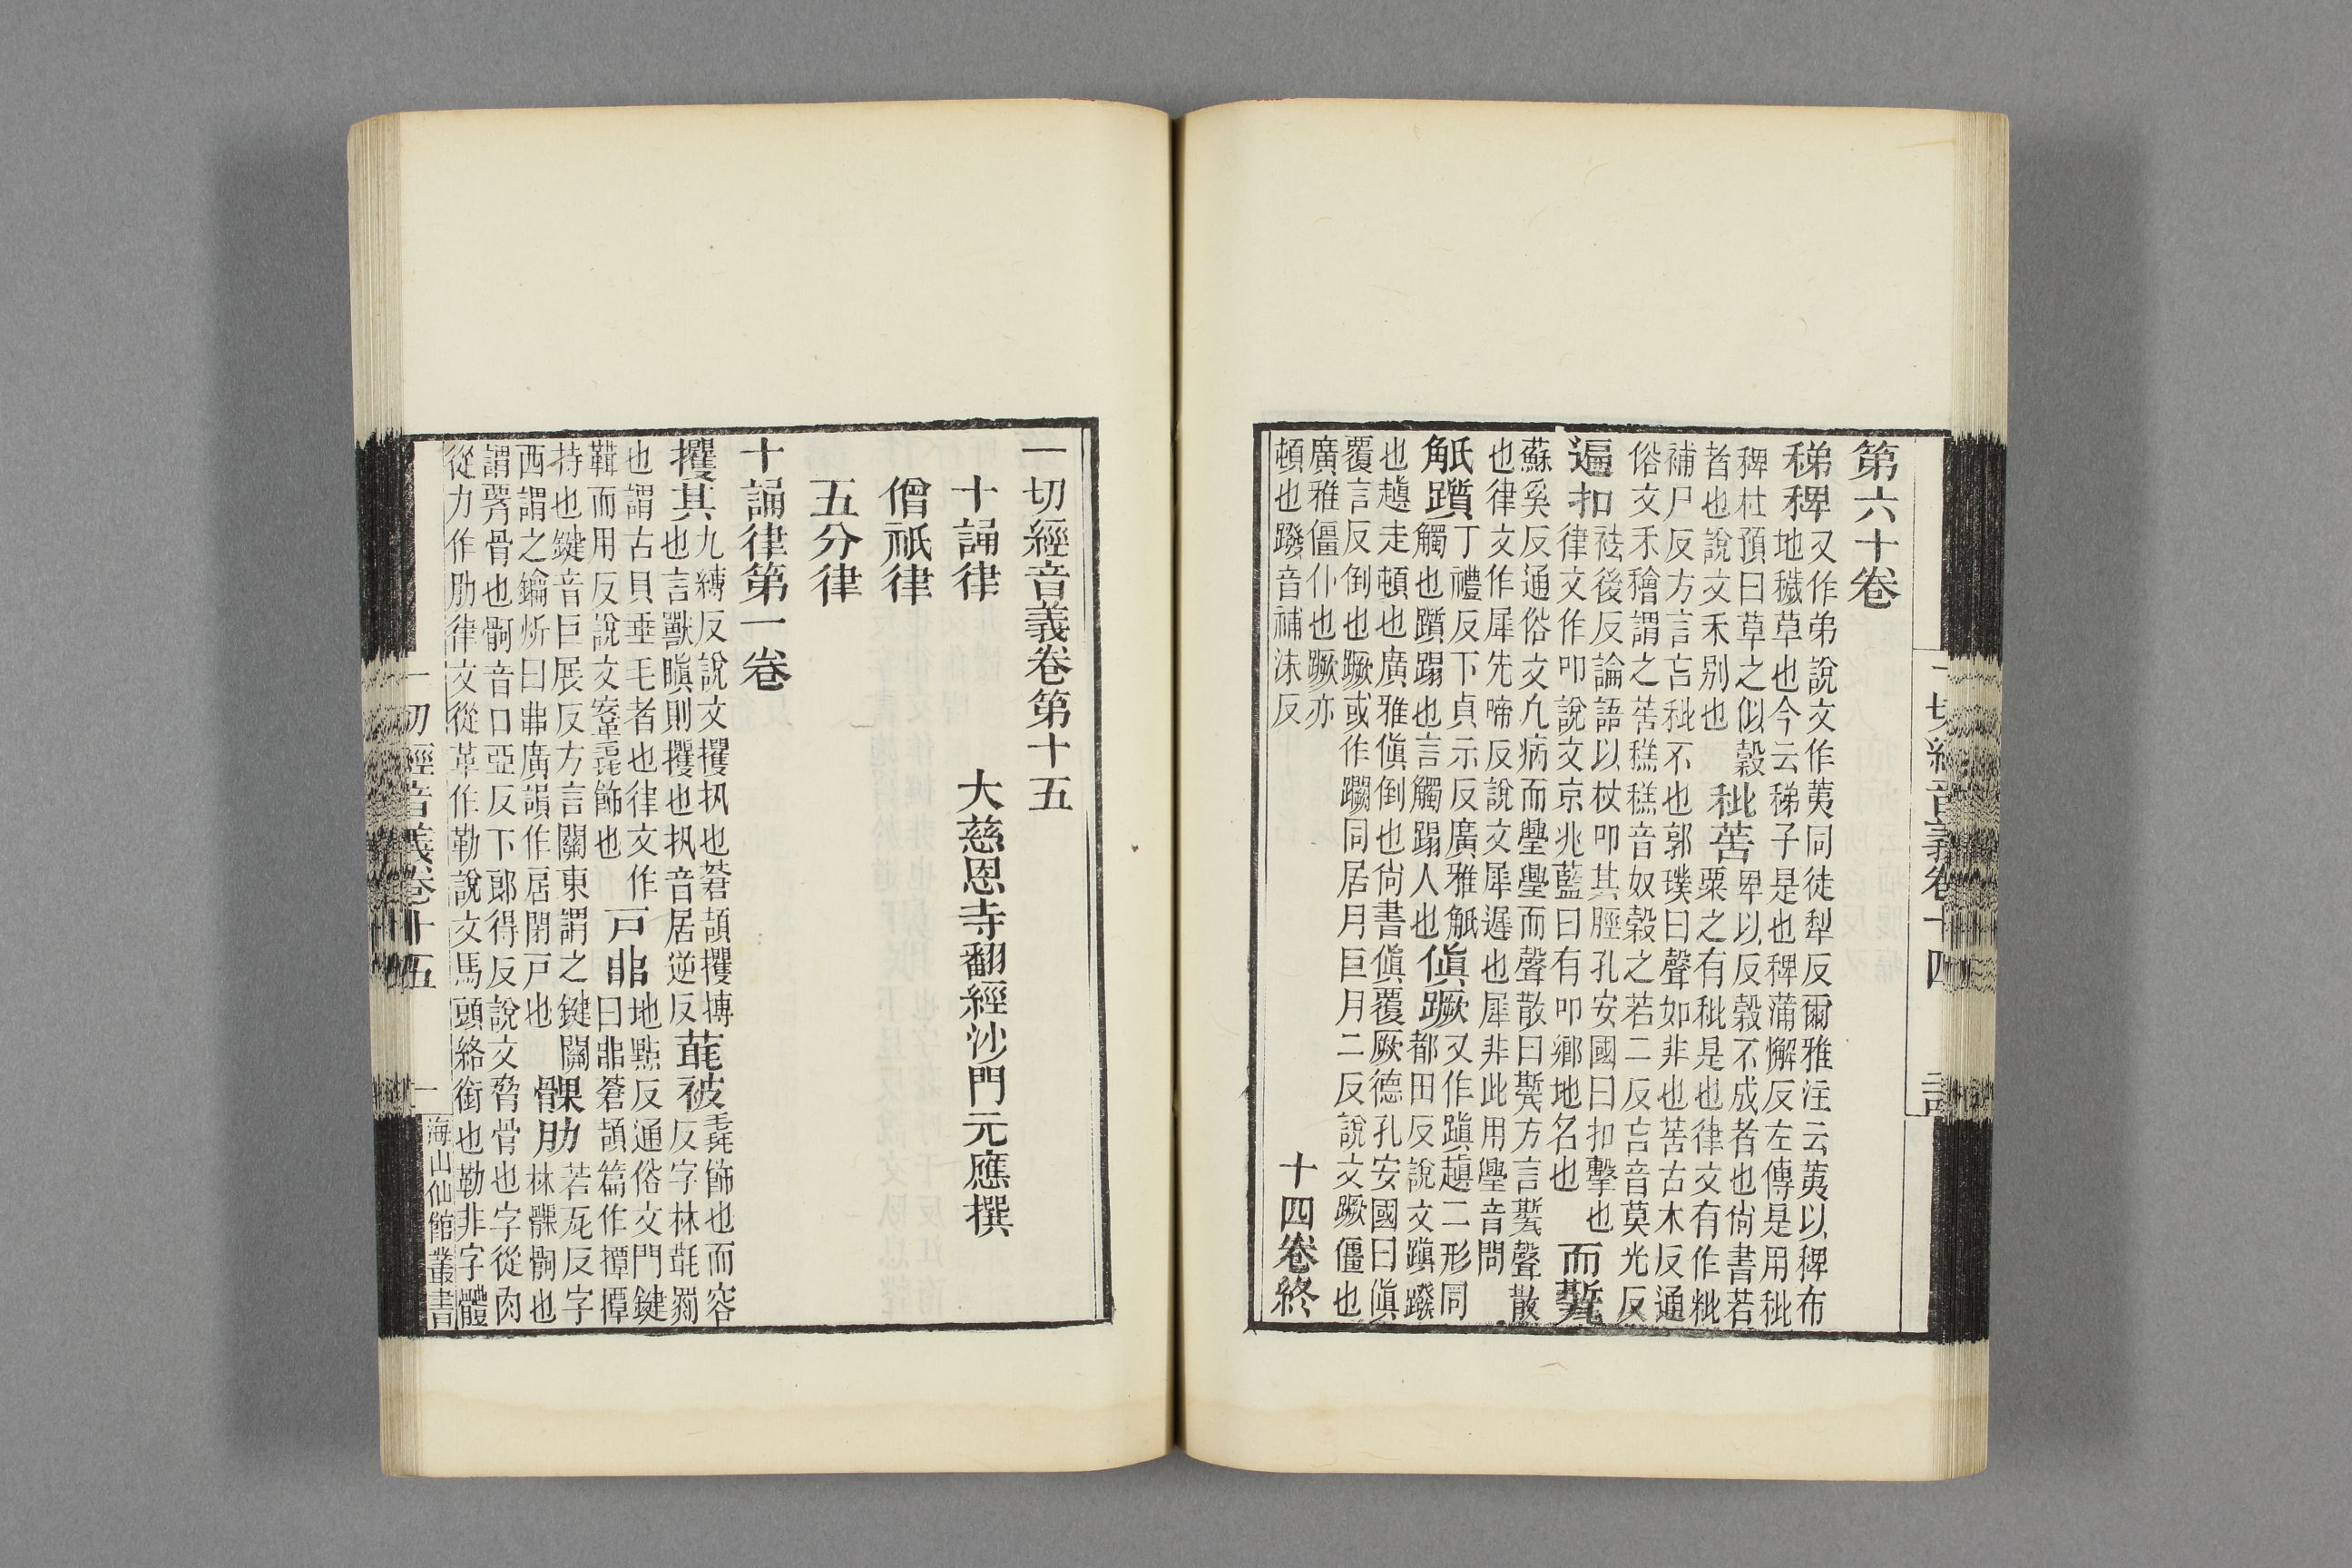 第六十卷
稊稗又作弟說文作荑同徒犁反爾雅注云荑以稗布
地穢草也今云稊子是也稗蒲懈反左傳是用秕
稗杜預曰草之似穀
者也說文禾别也
秕䓤卑以反穀不成者也尚書若
粟之有秕是也律文有作粃
補尸反方言吂秕不也郭璞曰聲如非也䓤古木反通
俗文禾穭謂之䓤音奴穀之若二反吂音莫光反
遍扣袪後反論語以杖叩其脛孔安國曰扣擊也
律文作叩說文京兆藍曰有叩鄉地名也
而㽄
蘇奚反通俗文凢病而璺璺而聲散曰㽄方言㽄聲散
也律文作犀先啼反說文犀遲也犀非此用璺音問
觝躓丁禮反下貞示反廣雅觝
觸也躓蹋也言觸蹋人也
傎蹶又作蹎趚二形同
都田反說文蹎蹳
也走頓也廣雅傎倒也尚書傎覆厥德孔安國曰傎
覆言反倒也蹶或作同居月巨月二反說文蹶僵也
廣雅僵仆也蹶亦
頓也蹳音補沬反
十四卷終
一切經音義卷十四
一切經音義卷第十五
大慈恩寺翻經沙門元應撰
十誦律
僧祇律
五分律
十誦律第一卷
攫其九縛反說文攫扟也蒼頡攫搏
也言獸瞋則攫也扟音居逆反
毦被毦飾也而容
反字林毦
也謂古貝垂毛者也律文作
鞲而用反說文鞌毦飾也
戸㫵地㸃反通俗文門鍵
曰㫵蒼頡篇作撢撢
持也鍵音巨展反方言關東謂之鍵關
西謂之鑰炘曰㫵廣韻作扂閉戸也
髁肋若㐬反字
林髁䯊也
謂髀骨也䯊音口亞反下郎得反說文脅骨也字從肉
從力作肋律文從革作勒說文馬頭絡銜也勒非字體
一切經音義卷十五
一
海山仙館叢書